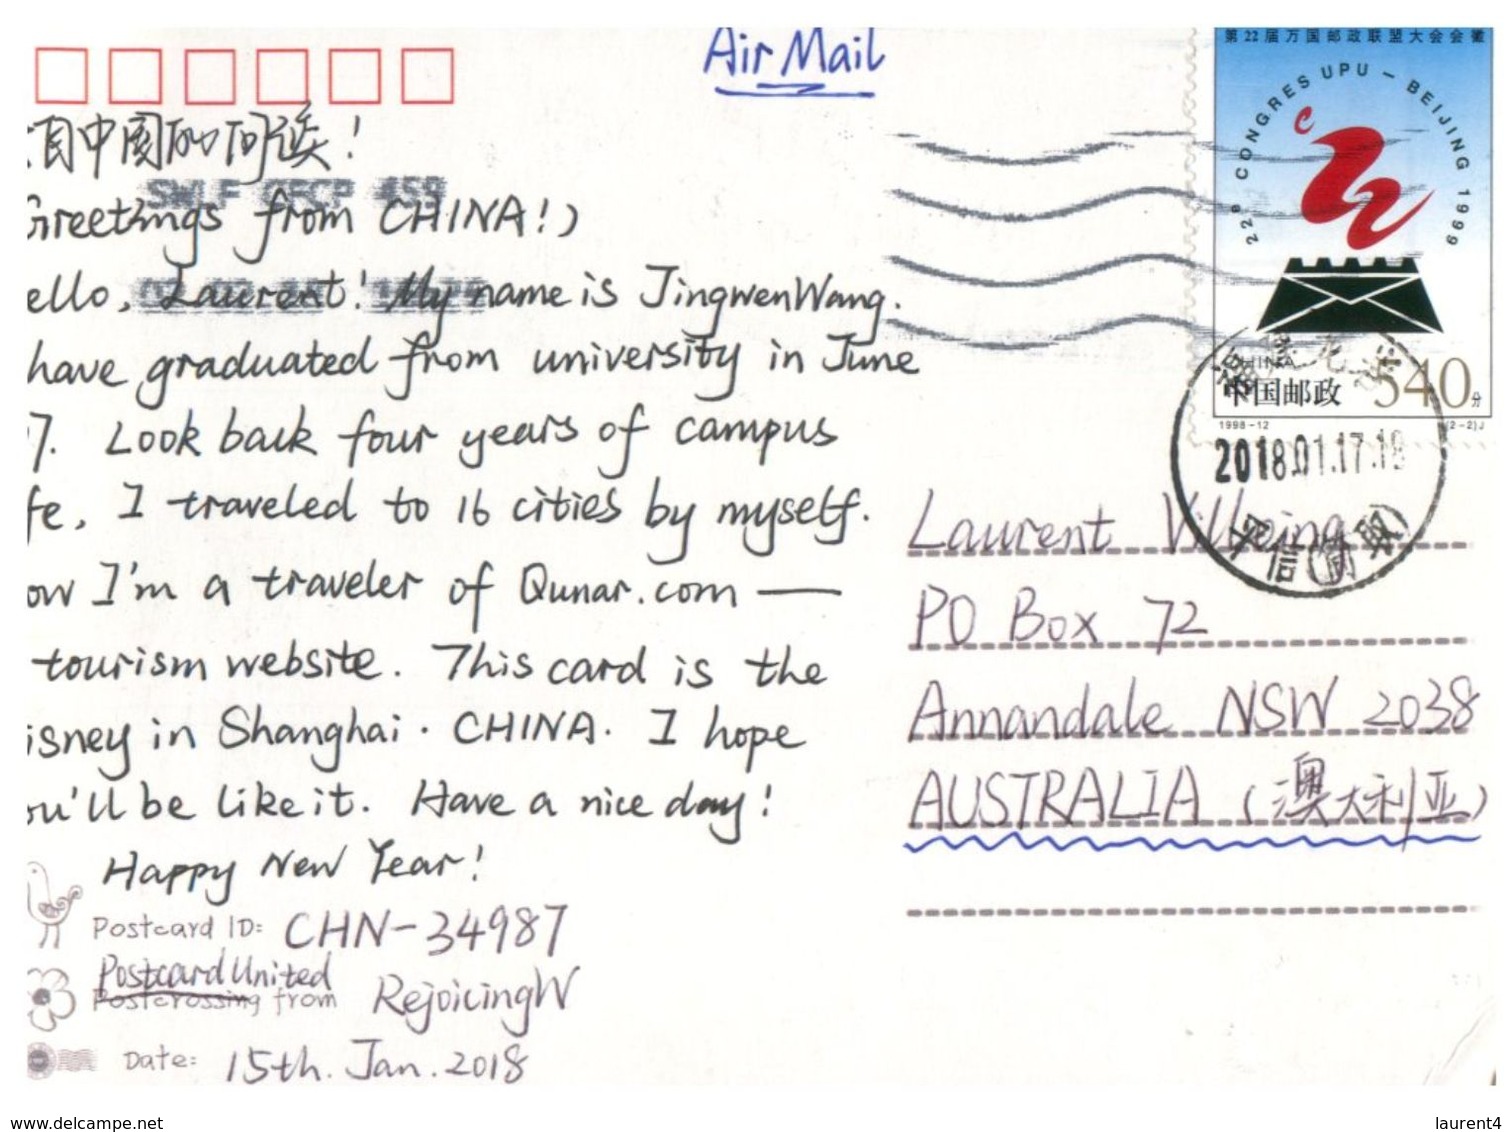 Air Mail
自中国的问候!
Greetings from CHINA!)
ello, Laurent! My name is JingwenWang.
have graduated from university in June
7. Look back four years of campus
fe, I traveled to 16 cities by myself.
ow I'm a traveler of Qunar.com —
tourism website. This card is the
isney in Shanghai. CHINA. I hope
ou'll be like it. Have a nice day!
Happy New Year!
Postcard ID: CHN-34987
Postcard United
Postcrossing from RejoicingW
Date: 15th. Jan. 2018
第22届万国邮政联盟大会会徽
22e CONGRES UPU - BEIJING 1999
CHINA
中国邮政 540分
1998-12 (2-2)J
2018.01.17.18
Laurent
PO Box 72
Annandale NSW 2038
AUSTRALIA (澳大利亚)
www.delcampe.net
laurent4